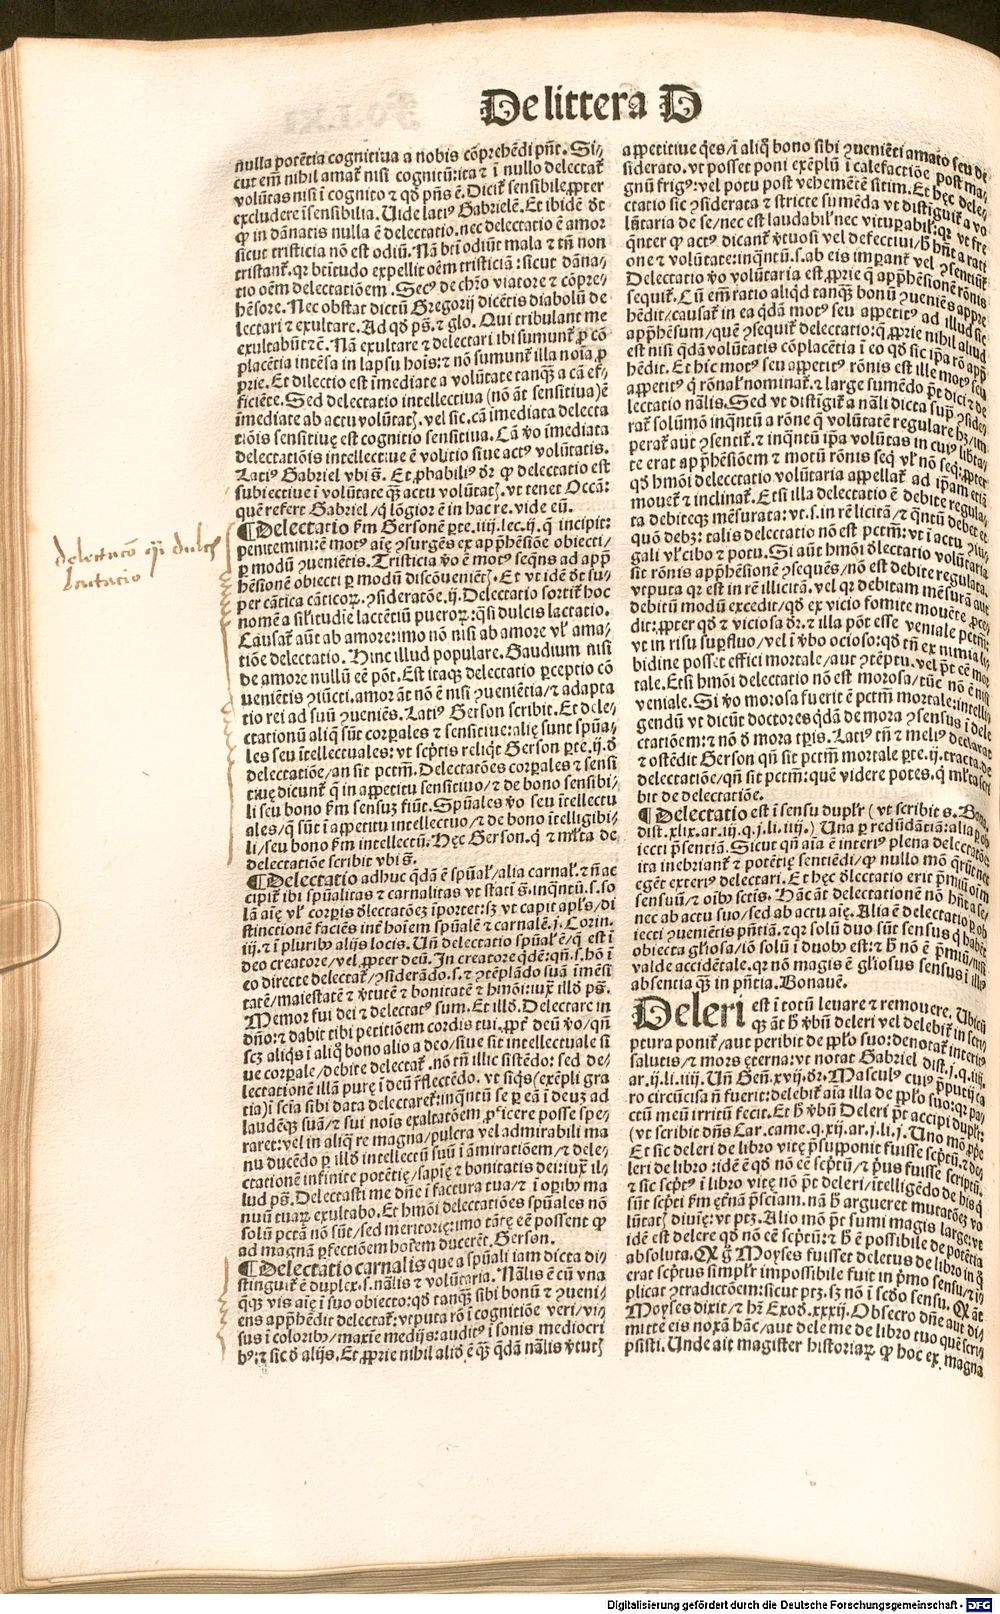 De littera D
nulla potētia cognitiua a nobis cōprehēdi pn̄t. Si-
cut em̄ nihil amat᷑ nisi cognitū: ita ⁊ ī nullo delectat᷑
volūtas nisi ī cognito ⁊ qd̄ pn̄s ē. Dicit᷑ sensibile ꝓpter
excludere īsensibilia. Uide latiꝰ Gabrielē. Et ibidē dr̄
ꝙ in dānatis nulla ē delectatio. nec delectatio ē amor
sicut tristicia nō est odiū. Nā bt̄i odiūt mala ⁊ tn̄ non
tristant᷑. qꝛ bt̄itudo expellit oēm tristiciā: sicut dāna-
tio oēm delectatiōem. Secꝰ de chr̄o viatore ⁊ cōpre-
hēsore. Nec obstat dictū Gregorij dicētis diabolū de
lectari ⁊ exultare. Ad qd̄ ps̄. ⁊ glo. Qui tribulant me
exultabūt ⁊ē. Nā exultare ⁊ delectari ibi sumunt᷑ ꝓ cō
placētia intēsa in lapsu hoīs: ⁊ nō sumunt᷑ illa noīa ꝓ
prie. Et dilectio est īmediate a volūtate tanqꝫ a cā ef-
ficiēte. Sed delectatio intellectiua (nō āt sensitiua) ē
īmediate ab actu volūtatꝭ. vel sic. cā īmediata delecta
tiōis sensitiuę est cognitio sensitiua. Cā v̄o īmediata
delectatiōis intellectiue ē volitio siue actꝰ volūtatis.
Latiꝰ Gabriel vbi s̄. Et ꝓbabiliꝰ dr̄ ꝙ delectatio est
subiectiue ī volūtate qꝫ actu volūtatꝭ. vt tenet Occā:
quē refert Gabriel/ q̇ lōgior ē in hac re. vide eū.
¶Delectatio ẜm Gersonē ꝑte. iiij. lec. ij. q̇ incipit:
penitemini: ē motꝰ aīę ꝯsurgēs ex app̄hēsiōe obiecti/
ꝑ modū ꝯueniētis. Tristicia v̄o ē motꝰ seq̄ns ad app̄
hēsionē obiecti ꝑ modū discōueniētꝭ. Et vt idē dr̄ su-
per cātica cāticoꝝ. ꝯsideratōe. ij. Delectatio sortit᷑ hoc
nomē a sil̄itudie lactētiū pueroꝝ: q̄si dulcis lactatio.
Causat᷑ aūt ab amore: imo nō nisi ab amore vl̄ ama-
tiōe delectatio. Hinc illud populare. Gaudium nisi
de amore nullū eē pōt. Est itaqꝫ delectatio ꝑceptio cō
ueniētis ꝯiūcti. amor āt nō ē nisi ꝯueniētia/ ⁊ adapta
tio rei ad suū ꝯueniēs. Latiꝰ Gerson scribit. Et dele-
ctationū aliq̄ sūt corꝑales ⁊ sensitiue: alię sunt spūa-
les seu ītellectuales: vt scp̄tis reliq̇t Gerson ꝑte. ij. d̄
delectatiōe/ an sit pctm̄. Delectatōes corꝑales ⁊ sensi
tiuę dicunt᷑ q̄ in appetitu sensitiuo/ ⁊ de bono sensibi-
li seu bono ẜm sensuꝫ fiūt. Spūales v̄o seu ītellectu
ales/ q̄ sūt ī appetitu intellectuo/ ⁊ de bono ītelligibi-
li/ seu bono ẜm intellectū. Hęc Gerson. q̇ ⁊ ml̄ta de
delectatiōe scribit vbi s̄.
¶Delectatio adhuc q̄dā ē spūal᷑/ alia carnal᷑. ⁊ n̄ ac
cipit᷑ ibi spūalitas ⁊ carnalitas vt statī s̄. inq̄ntū. s. so
lā aīę vl̄ corꝑis dlectatōeꝫ īportet: sꝫ vt capit apl̄s/ di
stinctionē faciēs int̄ hoīem spūalē ⁊ carnalē. j. Corin.
iij. ⁊ ī pluribꝰ alijs locis. Un̄ delectatio spūal᷑ ē/ q̄ est ī
deo creatore/ vel ꝓpter deū. In creatore q̇dē: qn̄. s. hō ī
eo directe delectat᷑/ ꝯsiderādo. s. ⁊ ꝯtēplādo suā īmēsi
tatē/ maiestatē ⁊ v̄tutē ⁊ bonitatē ⁊ hmōi: iuxͣ illd̄ ps̄.
Memor fui dei ⁊ delectatꝰ sum. Et illd̄. Delectare in
dn̄o: ⁊ dabit tibi petitiōem cordis tui. ꝓpt᷑ deū v̄o/ qn̄
scꝫ aliq̇s ī aliq̄ bono alio a deo/ siue sit intellectuale si
ue corꝑale/ debite delectat᷑. nō tn̄ illic sistēdo: sed de-
lectationē illā purę ī deū r̄flectēdo. vt siq̇s (exēpli gra
tia) ī scīa sibi data delectaret᷑: inq̄ntū se ꝑ eā ī deuꝫ ad
laudēqꝫ suā/ ⁊ sui nois exaltatōem ꝓficere posse spe-
raret: vel in aliq̄ re magna/ pulcra vel admirabili ma
nu ducēdo ꝑ illd̄ intellectū suū ī amiratiōem/ ⁊ dele-
ctationē infinite potētię/ sapīę ⁊ bonitatis dei: iuxͣ il-
lud ps̄. Delectasti me dn̄e ī factura tua/ ⁊ ī oꝑibꝰ ma
nuū tuaꝝ exultabo. Et hmōi delectatiōes spūales nō
solū pctā nō sūt/ sed meritorię: imo tātę eē possent ꝙ
ad magnā ꝑfectiōem hoīem ducerēt. Gerson.
¶Delectatio carnalis que a spūali iam dicta di-
stinguit᷑ ē duplex. s. nālis ⁊ volūtaria. Nālis ē cū vna
q̄qꝫ vis aīę ī suo obiecto: qd̄ tanqꝫ sibi bonū ⁊ ꝯueni-
ens app̄hēdit delectat᷑: vtputa rō ī cognitiōe veri/ vi-
sus ī coloribꝰ/ maxīe medijs: auditꝰ ī sonis mediocri
bꝰ: ⁊ sic d̄ alijs. Et ꝓprie nihil alid̄ ē qꝫ q̄dā nālis v̄tutꝭ
appetitiue q̇es/ ī aliq̄ bono sibi ꝯueniēti amato seu de
siderato. vt posset poni exēplū ī calefactiōe post ma-
gnū frigꝰ: vel potu post vehemētē sitim. Et hęc dele-
ctatio sic ꝯsiderata ⁊ stricte sumēda vt distiguit᷑ a vo
lūtaria de se/ nec est laudabil᷑ nec vituꝑabil᷑: qꝛ vt fre
q̄nter ꝙ actꝰ dicant᷑ v̄tuosi vel defectiui/ h̄ hn̄t a rati
one ⁊ volūtate: inq̄ntū. s. ab eis imꝑant᷑ vel ꝯsentiūt᷑
Delectatio v̄o volūtaria est ꝓprie q̄ app̄hēsionē rōnis
sequit᷑. Cū em̄ ratio aliqd̄ tanqꝫ bonū ꝯueniēs appre
hēdit/ causat᷑ in ea q̄dā motꝰ seu appetitꝰ ad illud sic
app̄hēsum/ quē ꝯsequit᷑ delectatio: q̄ ꝓprie nihil aliud
est nisi q̄dā volūtatis cōplacētia ī eo qd̄ sic ip̄a rō app̄
hēdit. Et hic motꝰ seu appetitꝰ rōnis est ille motꝰ seu
appetitꝰ q̇ rōnal᷑ nominat᷑. ⁊ large sumēdo p̄t dici ⁊ de
lectatio nālis. Sed vt distīgit᷑ a nāli dicta sup̄ ꝯside-
rat᷑ solūmō inq̄ntū a rōne q̄ volūtatē regulare hꝫ/ im
perat᷑ aūt ꝯsentit᷑. ⁊ inq̄ntū ip̄a volūtas in cuiꝰ liberta-
te erat app̄hēsiōem ⁊ motū rōnis seq̇ vl̄ nō seq̇: ꝓpter
qd̄ hmōi delecctatio volūtaria appellat᷑ ad ip̄am etiā
mouet᷑ ⁊ inclinat᷑. Etsi illa delectatio ē debite regula-
ta debiteqꝫ mēsurata: vt. s. in re līcitā/ ⁊ q̄ntū debet et
quō debꝫ: talis delectatio nō est pctm̄: vt ī actu ꝯiu-
gali vl̄ cibo ⁊ potu. Si aūt hmōi dlectatio volūtaria
sit rōnis app̄hēsionē ꝯsequēs/ nō est debite regulata.
vtputa qꝛ est in rē illicitā. vel qꝛ debitam mēsurā aut
debitū modū excedit/ qd̄ ex vicio fomite mouēte ꝓce-
dit: ꝓpter qd̄ ⁊ viciosa dr̄. ⁊ illa pōt esse veniale pctm̄:
vt in risu suꝑfluo/ vel ī v̄bo ocioso: qd̄ tn̄ ex nimia li-
bidine posset effici mortale/ aut ꝯtēptu. vel p̄t eē mor
tale. Etsi hmōi delectatio nō est morosa/ tūc nō ē nisi
veniale. Si v̄o morosa fuerit ē pctm̄ mortale: intelli-
gendū vt dicūt doctores q̄dā de mora ꝯsensus ī dele
ctatiōem: ⁊ nō d̄ mora tꝑis. Latiꝰ tn̄ ⁊ meliꝰ declarat
⁊ ostēdit Gerson qn̄ sit pctm̄ mortale ꝑte. ij. tracta. de
delectatiōe/ qn̄ sit pctm̄: quē videre potes. q̇ ml̄ta scri
bit de delectatiōe.
¶Delectatio est ī sensu duplr᷑ (vt scribit s. Bona.
dist. xlix. ar. iij. q. j. li. iiij.) Una ꝑ redūdātiā: alia ꝑ ob
iecti p̄sentiā. Sicut qn̄ aīa ē interiꝰ plena delectatōe
ita inebriant᷑ ⁊ potētię sentiēdi/ ꝙ nullo mō q̄rūt nec
egēt exteriꝰ delectari. Et hęc dlectatio erit p̄miū oīm
sensuū/ ⁊ oībꝰ sctīs. Hāc āt delectationē nō hn̄t a se/
nec ab actu suo/ sed ab actu aīę. Alia ē delectatio ꝑ ob
iecti ꝯueniētis pn̄tiā. ⁊ qꝛ solū duo sūt sensus q̇ habēt
obiecta gl̄iosa/ iō solū ī duobꝰ est: ⁊ h̄ nō ē p̄miū/ nisi
valde accidētale. qꝛ nō magis ē gl̄iosus sensus ī illiꝰ
absentia qꝫ in pn̄tia. Bonauē.
Deleri est ī totū leuare ⁊ remouere. Ubicūqꝫ āt h̄ v̄bū deleri vel delebit᷑ in scri
ptura ponit᷑/ aut peribit de ppl̄o suo: denotat᷑ interitꝰ
salutis/ ⁊ mors ęterna: vt notat Gabriel dist. j. q. iiij.
ar. ij. li. iiij. Un̄ Gen̄. xvij. dr̄. Masculꝰ cuiꝰ p̄putij ca
ro circūcisa n̄ fuerit: delebit᷑ aīa illa de ppl̄o suo: qꝛ pa-
ctū meū irritū fecit. Et h̄ v̄bū Deleri p̄t accipi duplr᷑:
(vt scribit dn̄s Car. came. q. xij. ar. j. li. j. Uno mō ꝓprie
Et sic deleri de libro vitę p̄supponit fuisse scp̄tū. ⁊ de-
leri de libro: idē ē qd̄ nō eē scp̄tū/ ⁊ pꝰus fuisse scriptū.
⁊ sic scp̄tꝰ ī libro vitę nō p̄t deleri/ itelligēdo de his q̇
sūt scp̄ti ẜm ęt̄nā p̄sciam. nā h̄ argueret mutatōeꝫ vo
lūtatꝭ diuīę: vt ptꝫ. Alio mō p̄t sumi magis large: vt
idē est delere qd̄ nō eē scp̄tū: ⁊ h̄ ē possibile de potētia
absoluta. Qꝙ g̊ Moyses fuisset deletus de libro in q̊
erat scp̄tus simplr᷑ impossibile fuit in p̄mo sensu/ ⁊ ī
plicat ꝯtradictōem: sicut ptꝫ. sꝫ nō ī scd̄o sensu. Qꝙ āt
Moyses dixit/ ⁊ hr̄ Exod̄. xxxij. Obsecro dn̄e aut di-
mitte eis noxā hāc/ aut dele me de libro tuo quē scri-
psisti. Unde ait magister historiaꝝ ꝙ hoc ex magna
delectatio q̄si dulcis
lactatio
Digitalisierung gefördert durch die Deutsche Forschungsgemeinschaft - DFG